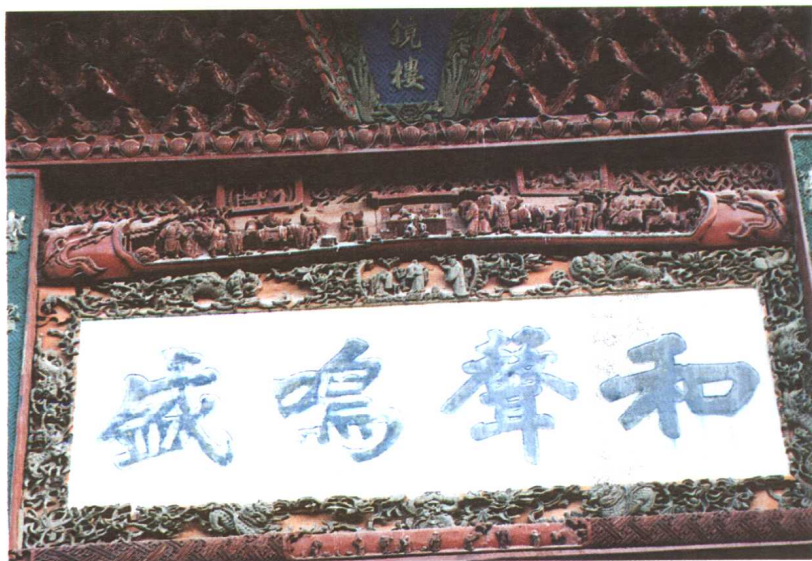 鏡樓
和聲鳴盛